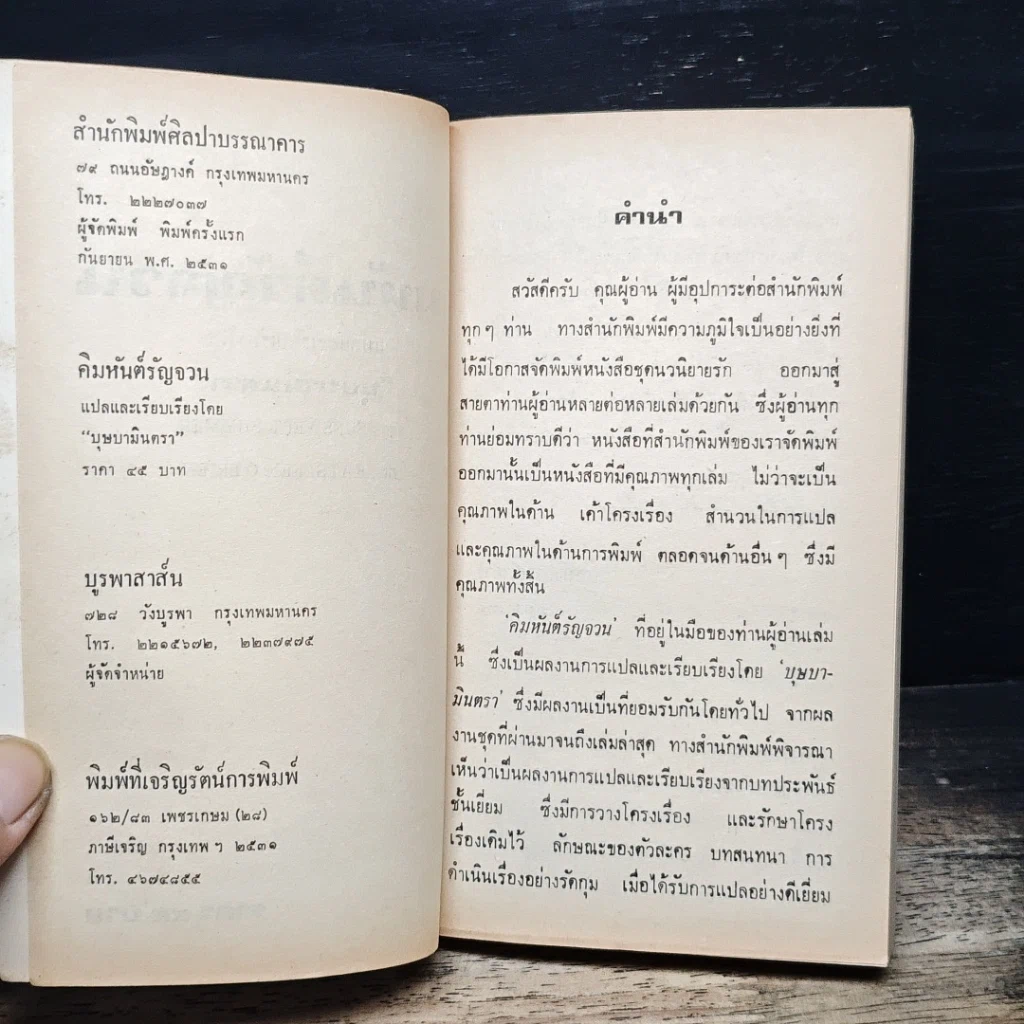 สำนักพิมพ์ศิลปาบรรณาคาร
๗๙ ถนนอัษฎางค์ กรุงเทพมหานคร
โทร. ๒๒๒๗๐๓๗
ผู้จัดพิมพ์ พิมพ์ครั้งแรก
กันยายน พ.ศ. ๒๕๓๑
คิมหันต์รัญจวน
แปลและเรียบเรียงโดย
“บุษบามินตรา”
ราคา ๔๕ บาท
บูรพาสาส์น
๗๒๘ วังบูรพา กรุงเทพมหานคร
โทร. ๒๒๑๕๖๗๒, ๒๒๓๗๙๗๕
ผู้จัดจำหน่าย
พิมพ์ที่เจริญรัตน์การพิมพ์
๑๖๒/๘๓ เพชรเกษม (๒๘)
ภาษีเจริญ กรุงเทพฯ ๒๕๓๑
โทร. ๔๖๗๔๘๕๕
คำนำ
สวัสดีครับ คุณผู้อ่าน ผู้มีอุปการะต่อสำนักพิมพ์
ทุกๆ ท่าน ทางสำนักพิมพ์มีความภูมิใจเป็นอย่างยิ่งที่
ได้มีโอกาสจัดพิมพ์หนังสือชุดนวนิยายรัก ออกมาสู่
สายตาท่านผู้อ่านหลายต่อหลายเล่มด้วยกัน ซึ่งผู้อ่านทุก
ท่านย่อมทราบดีว่า หนังสือที่สำนักพิมพ์ของเราจัดพิมพ์
ออกมานั้นเป็นหนังสือที่มีคุณภาพทุกเล่ม ไม่ว่าจะเป็น
คุณภาพในด้าน เค้าโครงเรื่อง สำนวนในการแปล
และคุณภาพในด้านการพิมพ์ ตลอดจนด้านอื่นๆ ซึ่งมี
คุณภาพทั้งสิ้น
‘คิมหันต์รัญจวน’ ที่อยู่ในมือของท่านผู้อ่านเล่ม
นี้ ซึ่งเป็นผลงานการแปลและเรียบเรียงโดย ‘บุษบา-
มินตรา’ ซึ่งมีผลงานเป็นที่ยอมรับกันโดยทั่วไป จากผล
งานชุดที่ผ่านมาจนถึงเล่มล่าสุด ทางสำนักพิมพ์พิจารณา
เห็นว่าเป็นผลงานการแปลและเรียบเรียงจากบทประพันธ์
ชั้นเยี่ยม ซึ่งมีการวางโครงเรื่อง และรักษาโครง
เรื่องเดิมไว้ ลักษณะของตัวละคร บทสนทนา การ
ดำเนินเรื่องอย่างรัดกุม เมื่อได้รับการแปลอย่างดีเยี่ยม